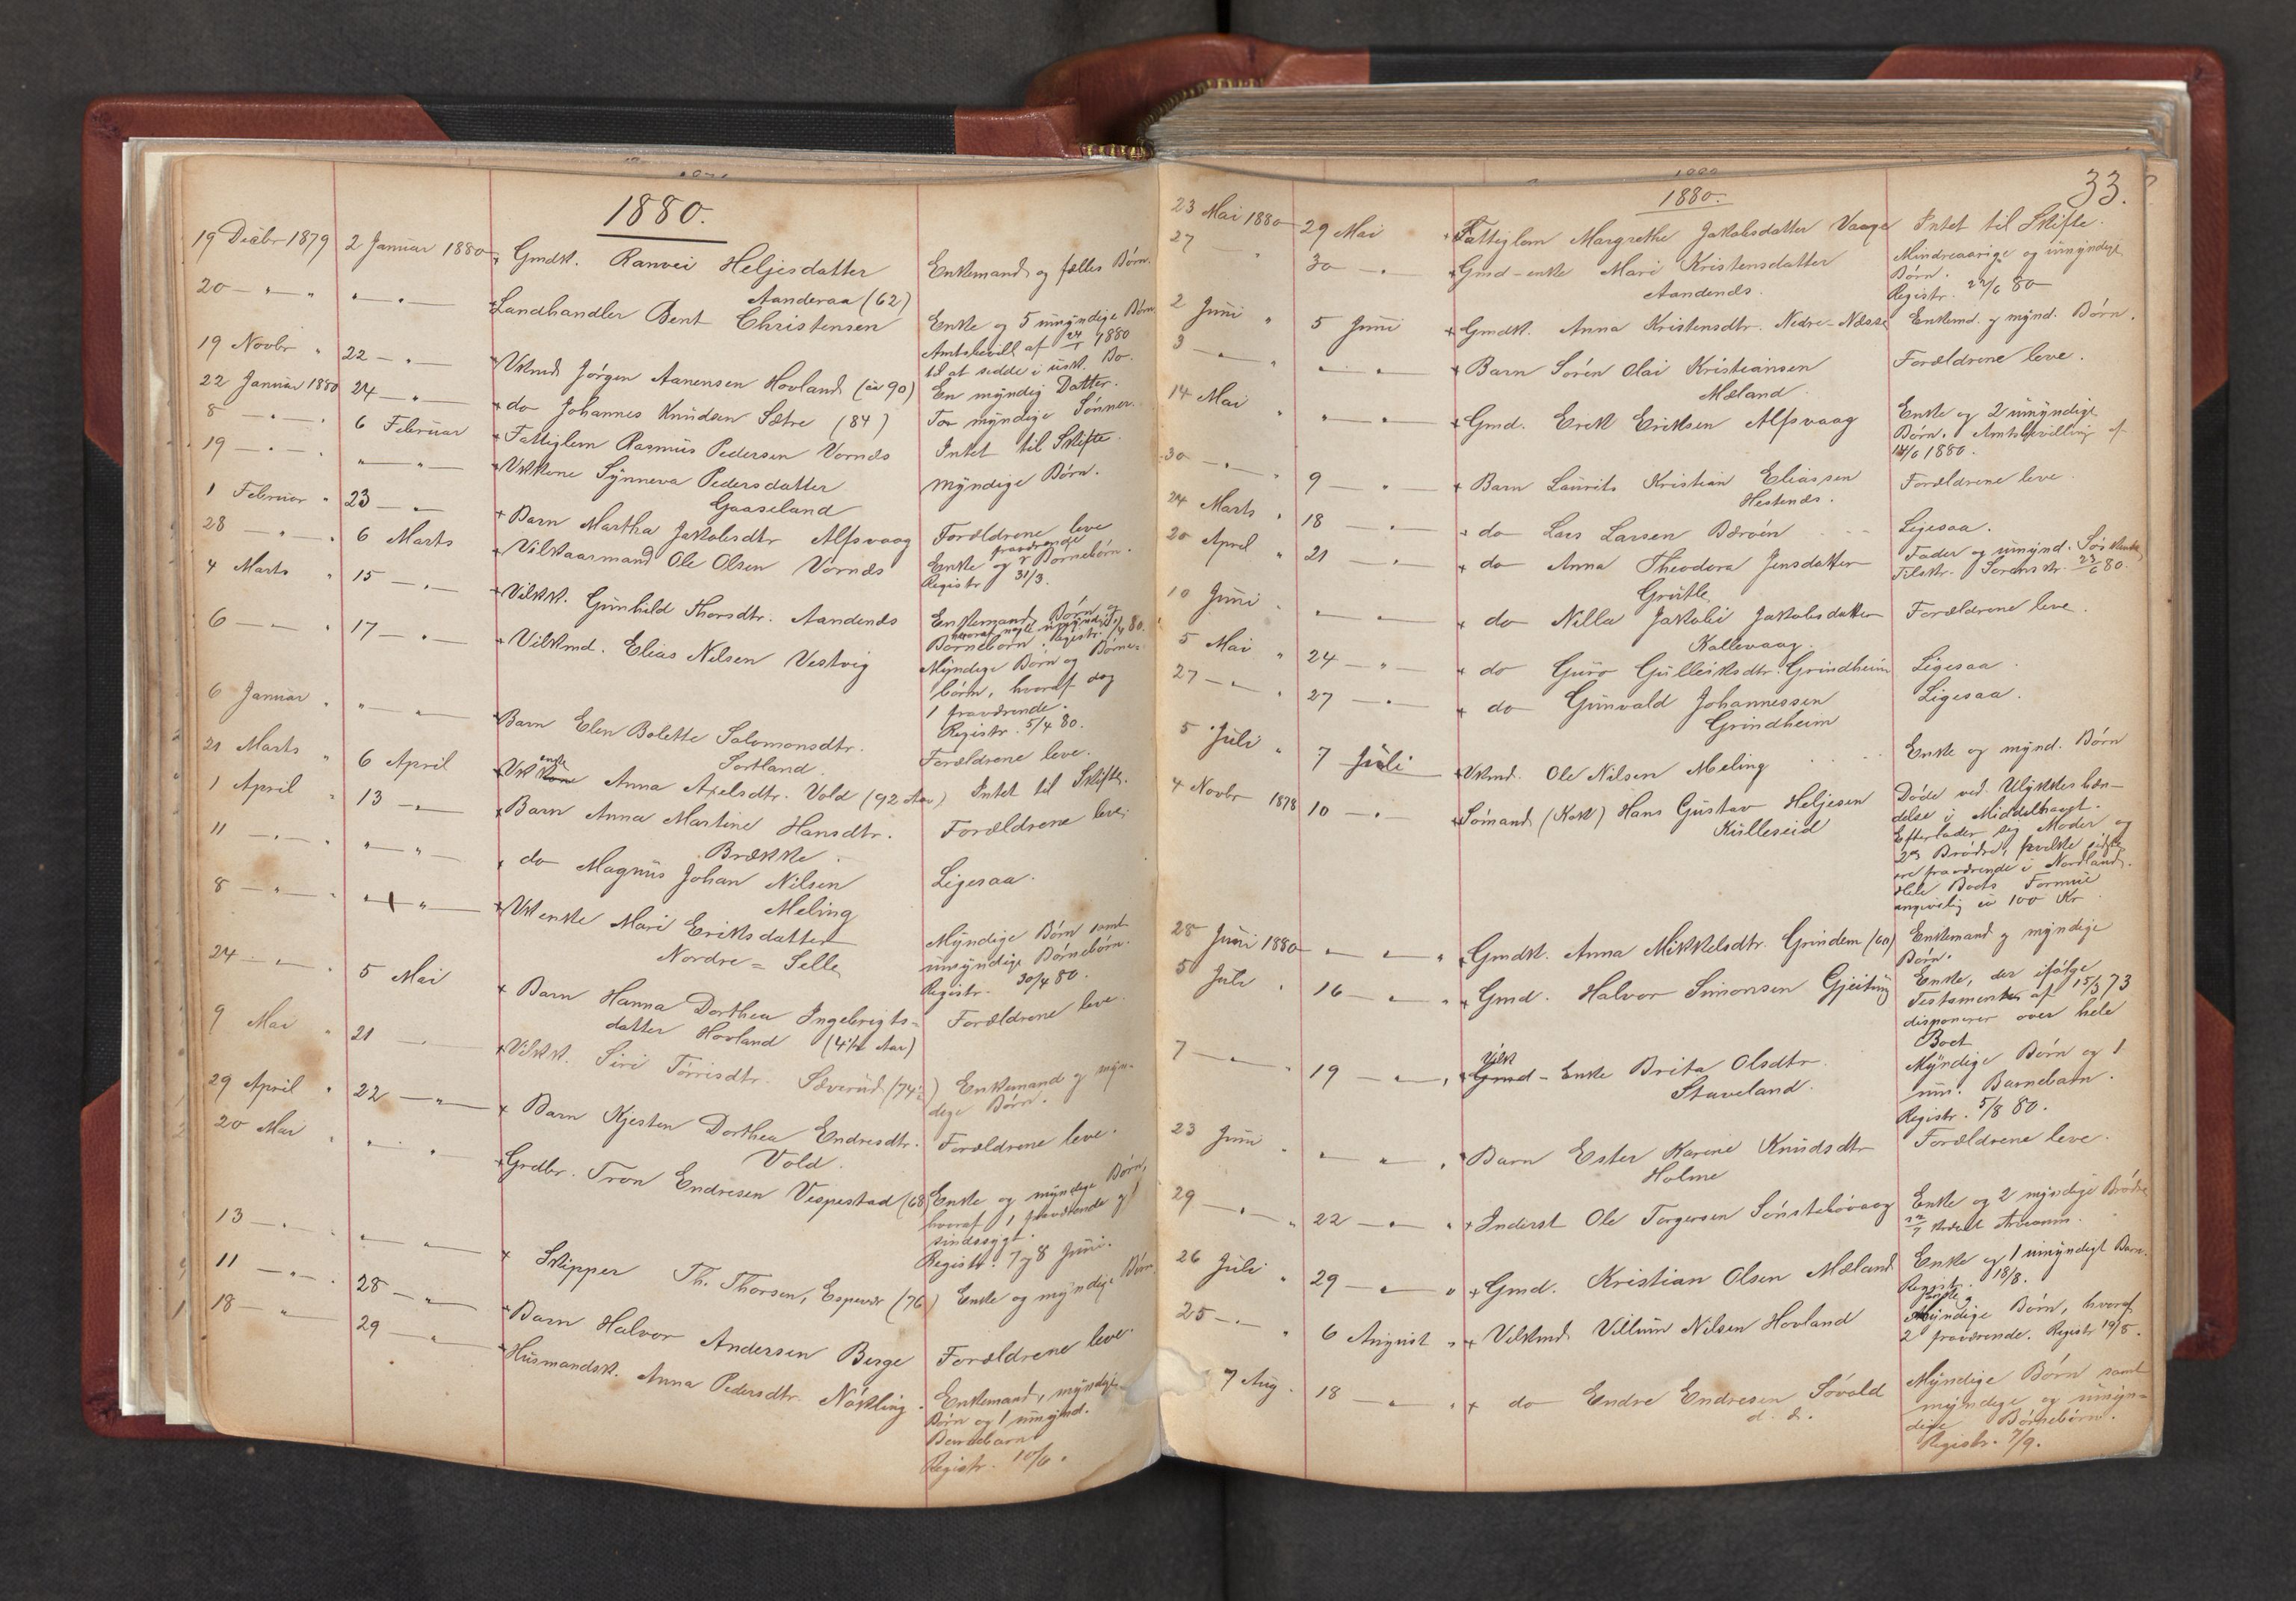 1880.
19 Decbr 1879 2 Januar 1880 Gmdk. Ranvei Heljesdatter Enkemand og fælles Børn.
Aanderaa (62)
20 — " — " — " — Landhandler Bent Christensen Enke og 5 umyndige Børn
Amtsbevill. af 24/1 1880
til at sidde i usk. Bo.
19 Novbr " 22 — " — Vkmd Jørgen Aanensen Hovland (ca 90) En myndig Datter.
22 Januar 1880 24 — " — do Johannes Knudsen Sætre (84) To myndige Sønner.
8 — " — 6 Februar Fattiglem Rasmus Pedersen Vornæs Intet til Skifte.
19 — " — " — " — Vkkone Synneva Pedersdatter myndige Børn.
Gaaseland
1 Februar " 23 — " — Barn Martha Jakobsdtr Alfsvaag Forældrene leve
28 — " — 6 Marts Vilkaarmand Ole Olsen Vornæs Enke og fraværende Børnebørn.
Registr 31/3.
4 Marts " 15 — " — Vilkk. Gunhild Thorsdtr. Aandenæs Enkemand, Børn og
hvoraf nogle umyndige
Børnebørn. Registr. 80.
6 — " — 17 — " — Vilkmd. Elias Nilsen Vestvig Myndige Børn og Børne-
børn, hvoraf dog
1 fraværende.
Registr. 5/4 80.
6 Januar " " — " — Barn Elen Bolette Salomonsdtr. Forældrene leve.
Sortland.
21 Marts " 6 April Vk enke Anna Axelsdtr. Vold (92 Aar) Intet til Skifte.
1 April " 13 — " — Barn Anna Martine Hansdtr. Forældrene leve.
Brække.
11 — " — " — " — do Magnus Johan Nilsen Ligesaa.
Meling
8 — " — " — " — Vk enke Mari Eriksdatter Myndige Børn samt
Nordre = Selle umyndige Børnebørn.
Registr. 30/4 80.
24 — " — 5 Mai Barn Hanna Dorthea Ingebrigts- Forældrene leve.
datter Hovland (4½ Aar)
9 Mai " 21 — Vilkk. Siri Tørrisdtr. Sæverud (74) Enkemand og myn-
dige Børn.
29 April " 22 — " — Barn Kjesten Dorthea Endresdtr. Forældrene leve.
Vold.
20 Mai " — " — Grdbr. Tron Endresen Vespestad (68) Enke og myndige Børn,
hvoraf 1 fraværende og 1
sindssygt.
Registr. 7 og 8 Juni.
13 — " — " — " — Skipper Th. Thorsen, Espevær (76) Enke og myndige Børn.
11 — " — 28 — " — Barn Halvor Andersen Berge Forældrene leve.
18 — " — 29 — " — Husmandsk. Anna Pedersdtr. Nøkling. Enkemand, myndige
Børn og 1 umynd.
Barnebarn
Registr. 10/6.
33.
1880.
23 Mai 1880 29 Mai Fattiglem Margrethe Jakobsdatter Vaage Intet til Skifte.
27 " 30 — " — Gmd-enke Mari Kristensdatter Mindreaarige og umyndige
Aandenæs. Børn.
Registr. 22/6 80
2 Juni " 5 Juni Gmdk. Anna Kristensdtr. Nedre-Næsse Enkemd. og mynd. Børn.
3 — " — " — " — Barn Søren Olai Kristiansen Forældrene leve.
Mæland.
14 Mai " " — " — Gmd. Erik Eriksen Alfsvaag Enke og 2 umyndige
Børn. Amtsbevilling af
14/6 1880.
30 — " — 9 — " — Barn Laurits Kristian Eliassen Forældrene leve.
Hestenæs.
24 Marts " 18 — " — do Lars Larsen Bærøen Ligesaa.
20 April " 21 — " — do Anna Theodora Jensdatter Fader og umynd. Søskende
Grutle Tilskr. Sorensk. 23/6 80.
10 Juni " — " — do Nilla Jakobi Jakobsdatter Forældrene leve.
Kallevaag.
5 Mai " 24 — " — do Guro Gulleiksdtr. Grindheim Ligesaa.
27 — " — 27 — " — do Gunvald Johannessen Ligesaa.
Grindheim
5 Juli " 7 Juli Vkmd. Ole Nilsen Meling Enke og mynd. Børn
4 Novbr 1878 10 — " — Sømand (Kok) Hans Gustav Heljesen Døde ved Ulykkeshæn-
Kulleseid delse i Middelhavet.
Efterlader sig Moder og
2 Brødre, hvilke sidste
ere fraværende i Nordland.
Hele Boets Formue
angivelig ca 100 Kr.
28 Juni 1880 " — " — " Gmdk. Anna Mikkelsdtr. Grindem (60) Enkemand og myndige
Børn.
5 Juli " 16 — " — " Gmd. Halvor Simonsen Gjeitung Enke, der ifølge
Testamente af 15/3 73
disponerer over hele
Boet
7 — " — 19 — " — " Vilk Gmd - Enke Brita Olsdtr. Myndige Børn og 1
Staveland. um. Barnebarn.
Registr. 5/8 80.
23 Juni " " — " — " Barn Ester Karine Knudsdtr Forældrene leve.
Holme
29 — " — " 22 — " — " Inderst Ole Torgersen Sønstabøvaag Enke og 2 myndige Brødre
26 Juli " 29 — " — " Gmd. Kristian Olsen Mæland Enke og 1 umyndigt Barn.
Registr. 18/8.
25 — " — " 6 August " Vilkmd Villum Nilsen Hovland Myndige Børn, hvoraf
2 fraværende. Registr 19/8.
7 Aug. 18 — " — " do Endre Endresen Søvold Myndige Børn samt
d. æ. myndige og umyn-
dige Børnebørn.
Registr. 7/9.